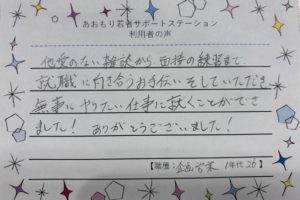 あおもり若者サポートステーション
利用者の声
他愛のない雑談から面接の練習まで
就職に向き合うお手伝いをしていただき
無事にやりたい仕事に就くことができ
ました！ありがとうございました！
【職種：企画営業 年代26】